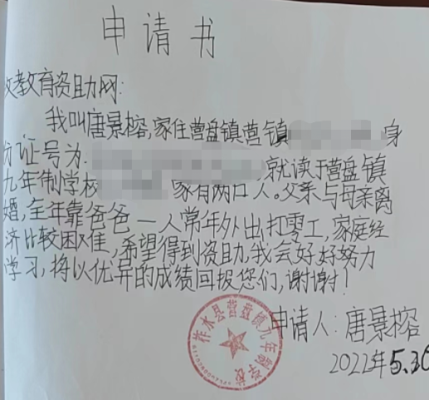 申请书
教育资助网:
我叫唐景榕,家住营盘镇营镇 身
份证号为: 就读于营盘镇
九年制学校 家有两口人。父亲与母亲离
婚,全年靠爸爸一人常年外出打零工,家庭经
济比较困难,希望得到资助,我会好好努力
学习,将以优异的成绩回报您们,谢谢!
柞水县营盘镇九年制学校
申请人:唐景榕
2022年5.30